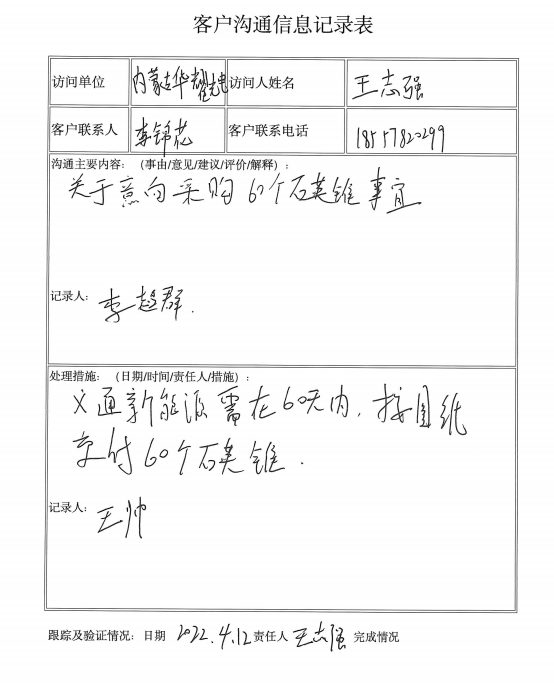 客户沟通信息记录表
访问单位 内蒙古华耀光电 访问人姓名 王志强
客户联系人 李锦花 客户联系电话 18557820299
沟通主要内容：（事由/意见/建议/评价/解释）：
关于意向采购60个石英锥事宜
记录人： 李超群.
处理措施：（日期/时间/责任人/措施）：
义通新能源需在60天内，按图纸
交付60个石英锥.
记录人： 王帅
跟踪及验证情况：日期 2022.4.12 责任人 王志强 完成情况